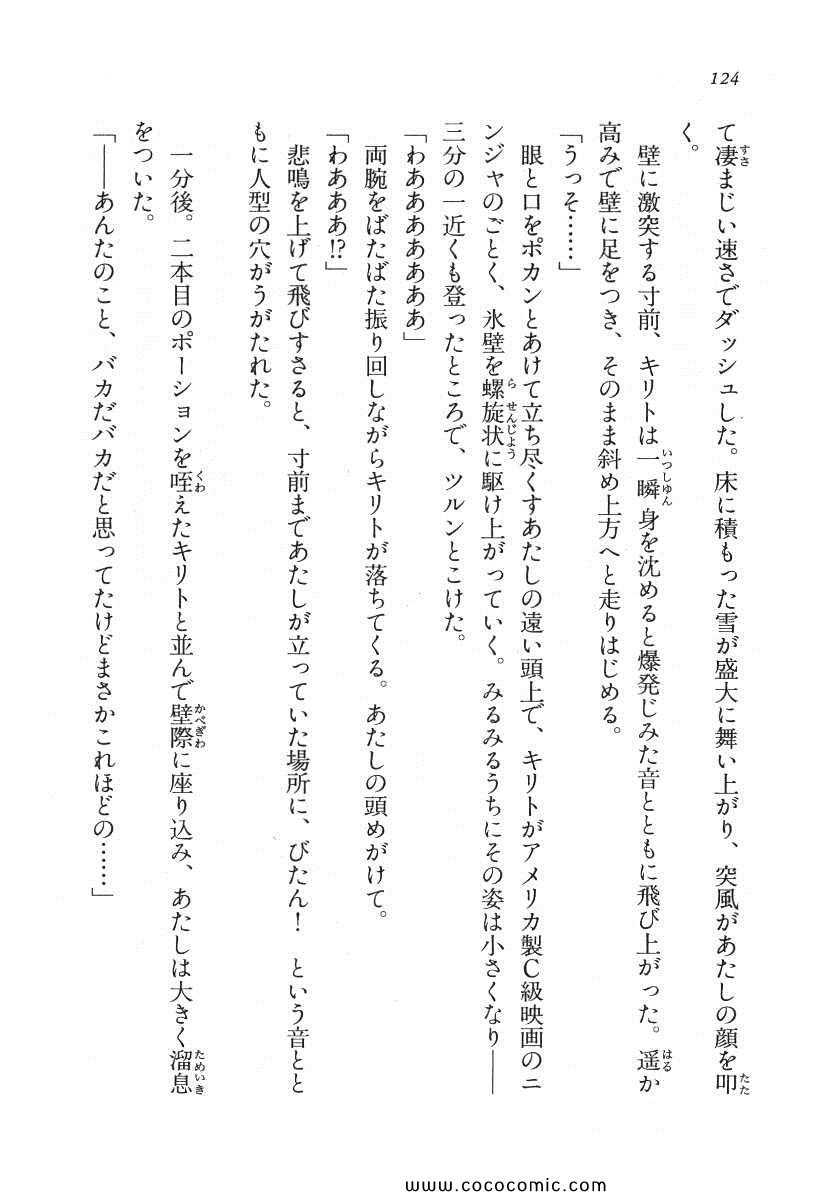 124
て凄まじい速さでダッシュした。床に積もった雪が盛大に舞い上がり、突風があたしの顔を叩
く。
　壁に激突する寸前、キリトは一瞬身を沈めると爆発じみた音とともに飛び上がった。遥か
高みで壁に足をつき、そのまま斜め上方へと走りはじめる。
「うっそ……」
　眼と口をポカンとあけて立ち尽くすあたしの遠い頭上で、キリトがアメリカ製Ｃ級映画のニ
ンジャのごとく、氷壁を螺旋状に駆け上がっていく。みるみるうちにその姿は小さくなり――
三分の一近くも登ったところで、ツルンとこけた。
「わあああああああ」
　両腕をばたばた振り回しながらキリトが落ちてくる。あたしの頭めがけて。
「わあああ!?」
　悲鳴を上げて飛びすさると、寸前まであたしが立っていた場所に、びたん！　という音とと
もに人型の穴がうがたれた。
　一分後。二本目のポーションを咥えたキリトと並んで壁際に座り込み、あたしは大きく溜息
をついた。
「――あんたのこと、バカだバカだと思ってたけどまさかこれほどの……」
www.cococomic.com